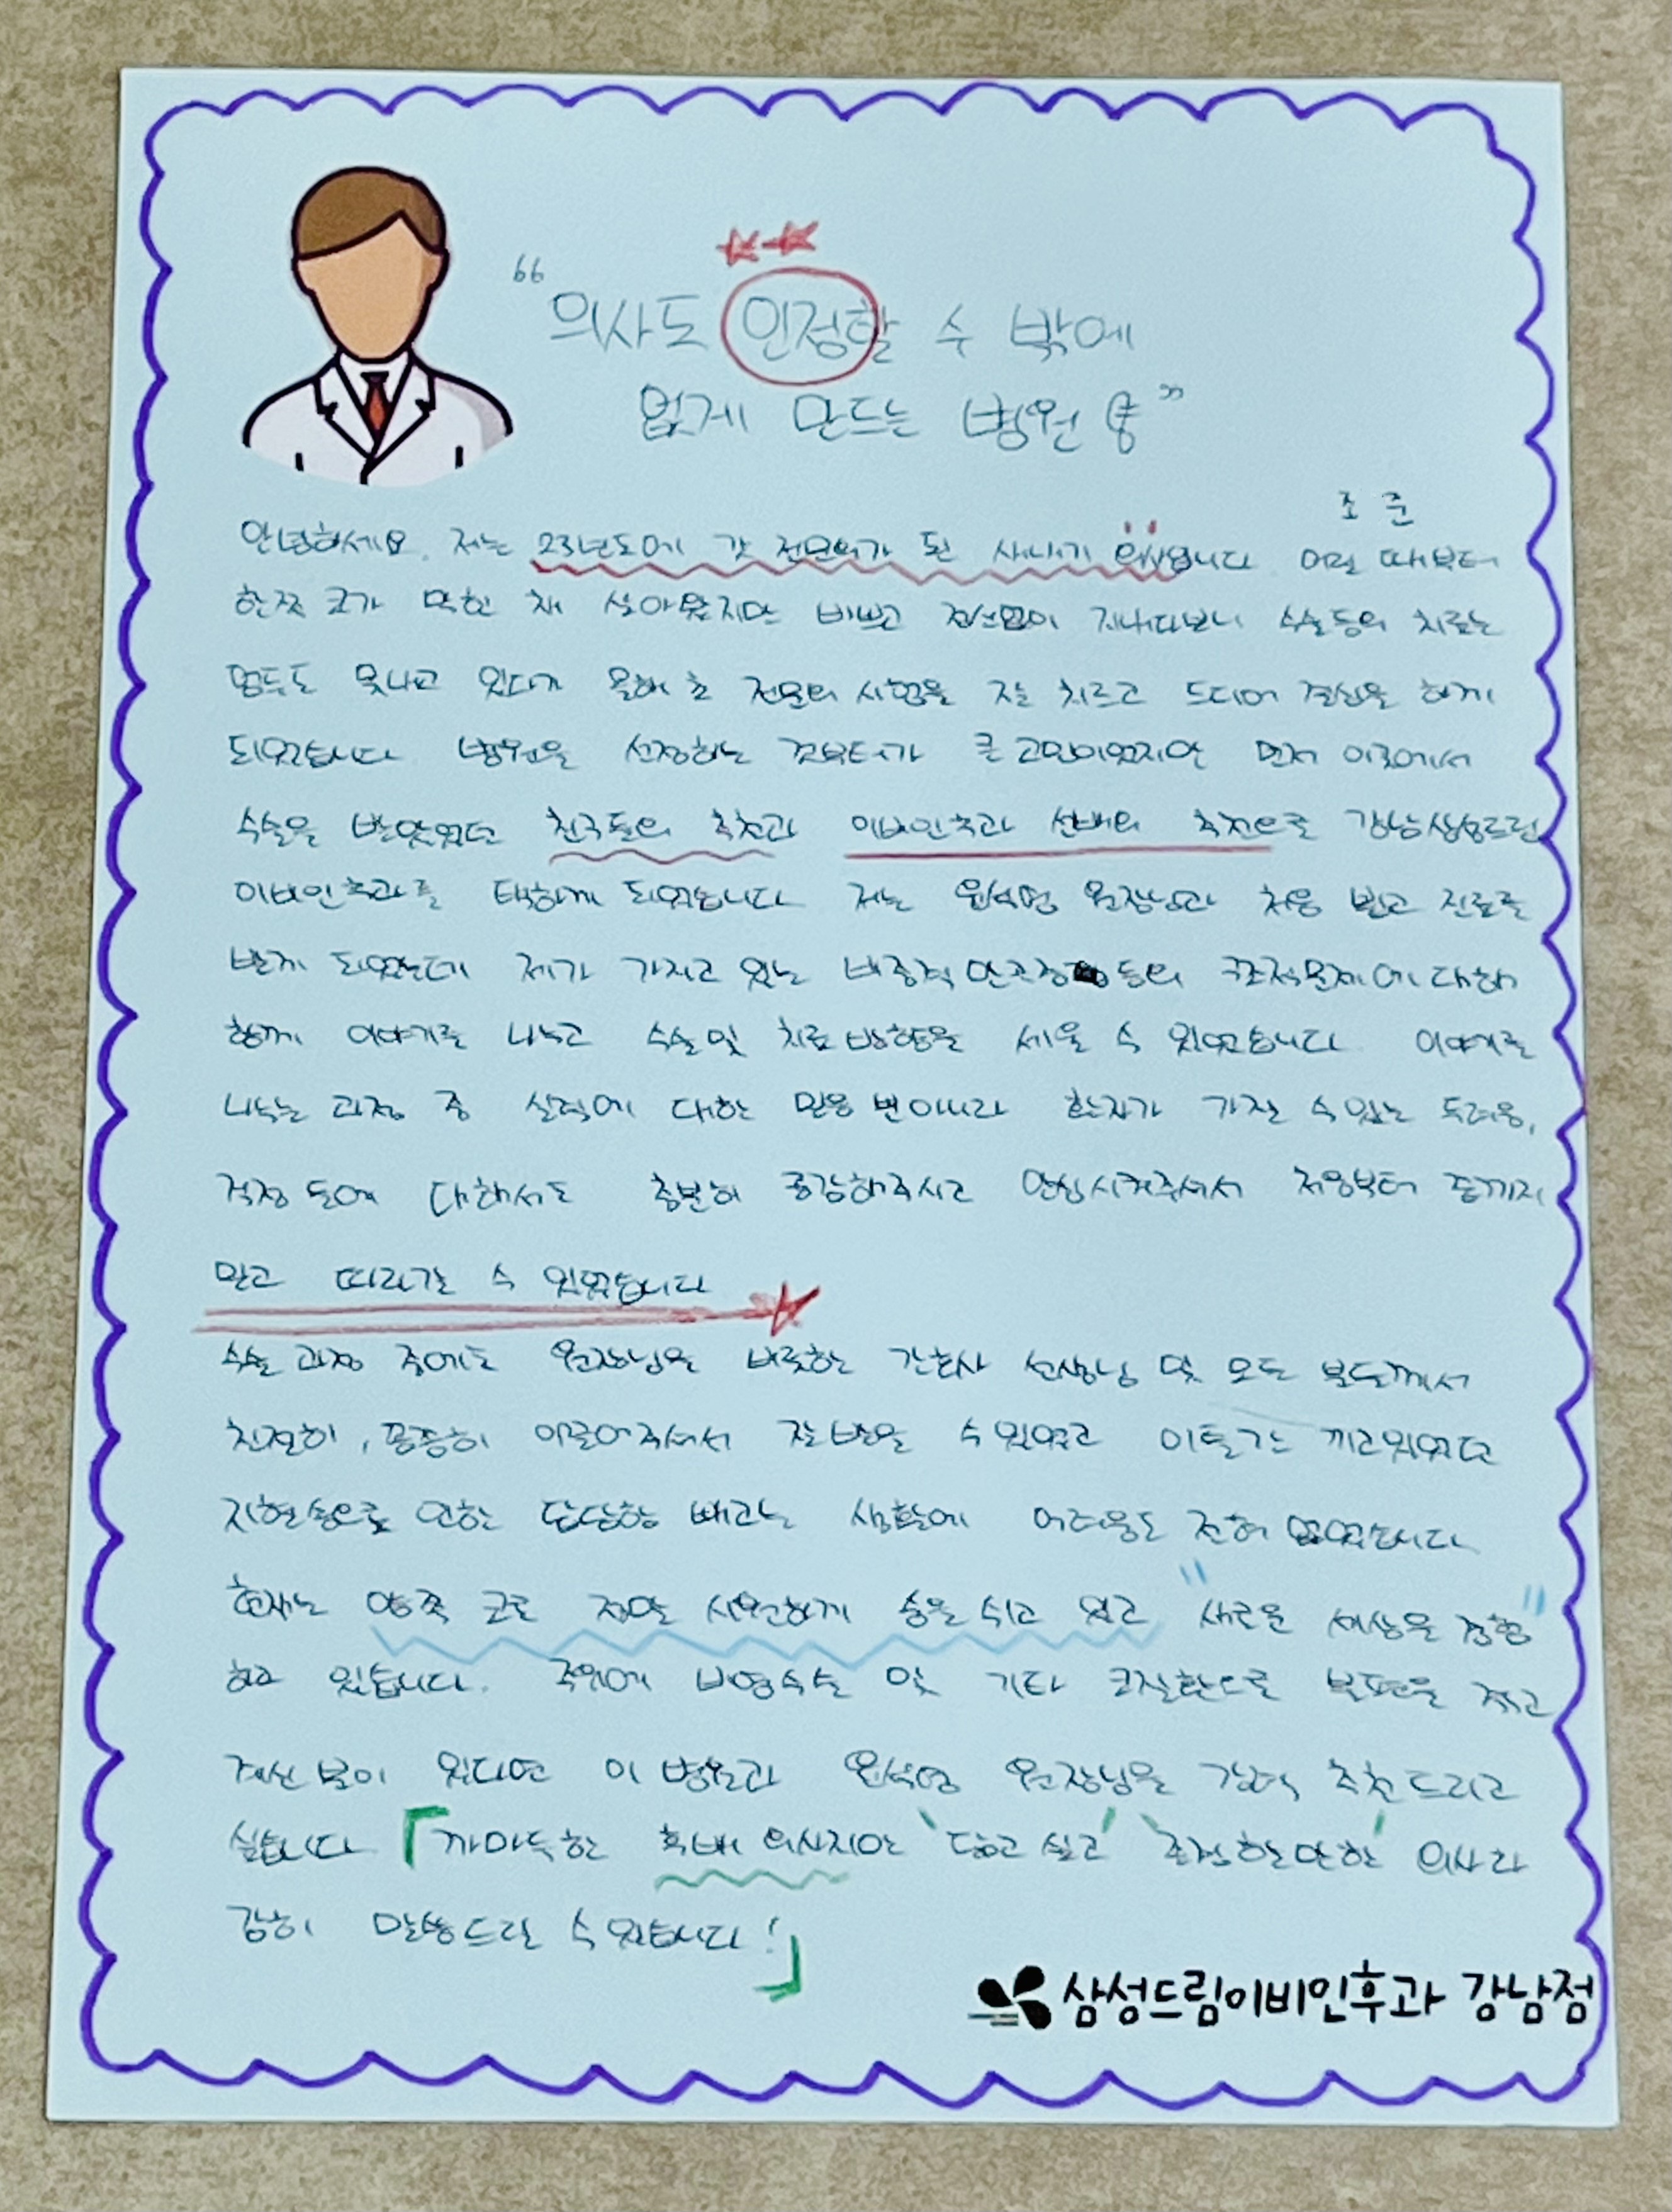 "의사도 인정할 수 밖에
없게 만드는 병원"
조 준
안녕하세요. 저는 23년도에 갓 전문의가 된 새내기 의사입니다 어릴 때부터
한쪽 코가 막힌 채 살아왔지만 바쁘고 정신없이 지내다보니 수술등의 치료는
엄두도 못내고 있다가 올해 초 전문의 시험을 잘 치르고 드디어 결심을 하게
되었습니다 병원을 선정하는 것부터가 큰 고민이었지만 먼저 이곳에서
수술을 받았었던 친구들의 추천과 이비인후과 선배의 추천으로 강남삼성드림
이비인후과를 택하게 되었습니다 저는 원장님과 처음 뵙고 진료를
받게 되었는데 제가 가지고 있는 비중격만곡증 등의 구조적문제에 대해
함께 이야기를 나누고 수술 및 치료 방향을 세울 수 있었습니다 이야기를
나누는 과정 중 실력에 대한 믿음 뿐아니라 환자가 가질 수 있는 두려움,
걱정 등에 대해서도 충분히 공감해주시고 안심시켜주셔서 처음부터 끝까지
믿고 따라갈 수 있었습니다
수술 과정 중에도 원장님을 비롯한 간호사 선생님 및 모든 분들께서
친절히, 꼼꼼히 이끌어주셔서 잘 받을 수 있었고 이틀간 끼고있었던
지혈솜으로 인한 답답함 빼고는 생활에 어려움도 전혀 없었습니다
현재는 양쪽 코로 정말 시원하게 숨을 쉬고 있고 "새로운 세상을 경험"
하고 있습니다. 주위에 비염수술 및 기타 코질환으로 불편을 겪고
계신 분이 있다면 이 병원과 원장님을 강력 추천드리고
싶습니다 「까마득한 후배 의사지만 '닮고 싶고' '존경할만한' 의사라
감히 말씀드릴 수 있습니다!」
삼성드림이비인후과 강남점